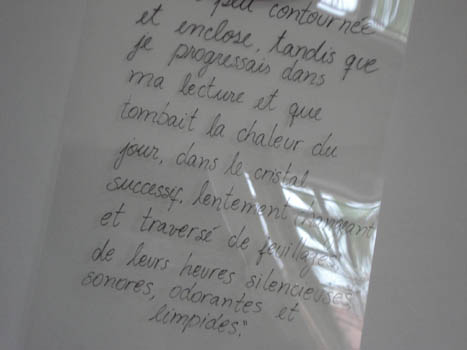 peu contournée
et enclose, tandis que
je progressais dans
ma lecture et que
tombait la chaleur du
jour, dans le cristal
successif, lentement changeant
et traversé de feuillages,
de leurs heures silencieuses,
sonores, odorantes et
limpides."